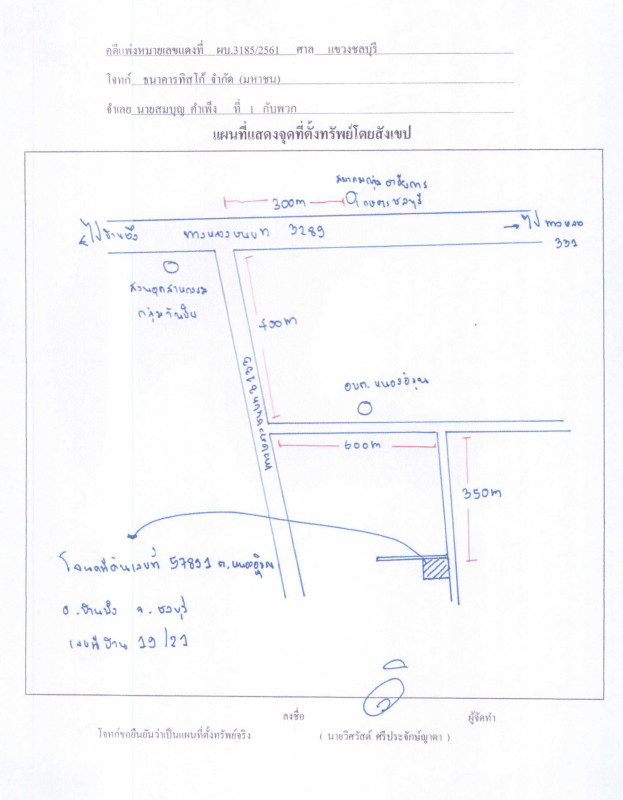 คดีแพ่งหมายเลขแดงที่ ผบ.3185/2561 ศาล แขวงชลบุรี
โจทก์ ธนาคารทิสโก้ จำกัด (มหาชน)
จำเลย นายสมบุญ คำเพ็ง ที่ 1 กับพวก
แผนที่แสดงจุดที่ตั้งทรัพย์โดยสังเขป
300m
ชลบุรี
ไปบ้านบึง
ทางหลวงชนบท 3289
ไป ทางหลวง
331
สวนอุตสาหกรรม
กลุ่มกันยิน
400m
อบต. หนองอิรุณ
600m
350m
โฉนดที่ดินเลขที่ 57891 ต.หนองอิรุณ
อ.บ้านบึง จ.ชลบุรี
เลขที่บ้าน 19/21
ลงชื่อ ผู้จัดทำ
โจทก์ขอยืนยันว่าเป็นแผนที่ตั้งทรัพย์จริง ( นายวิศวัสต์ ศรีประจักษ์ญาดา )